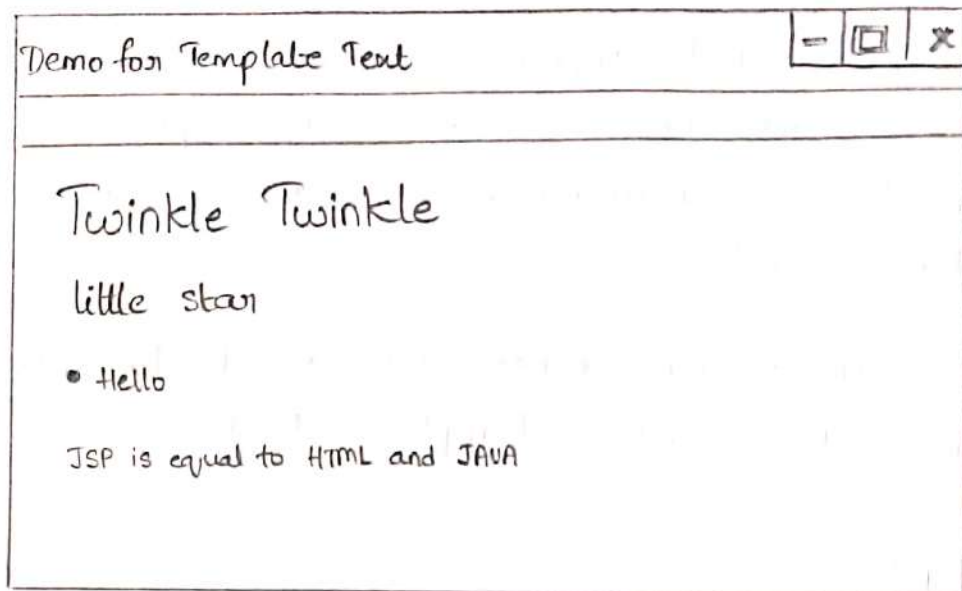 Demo for Template Text
Twinkle Twinkle
little star
• Hello
JSP is equal to HTML and JAVA